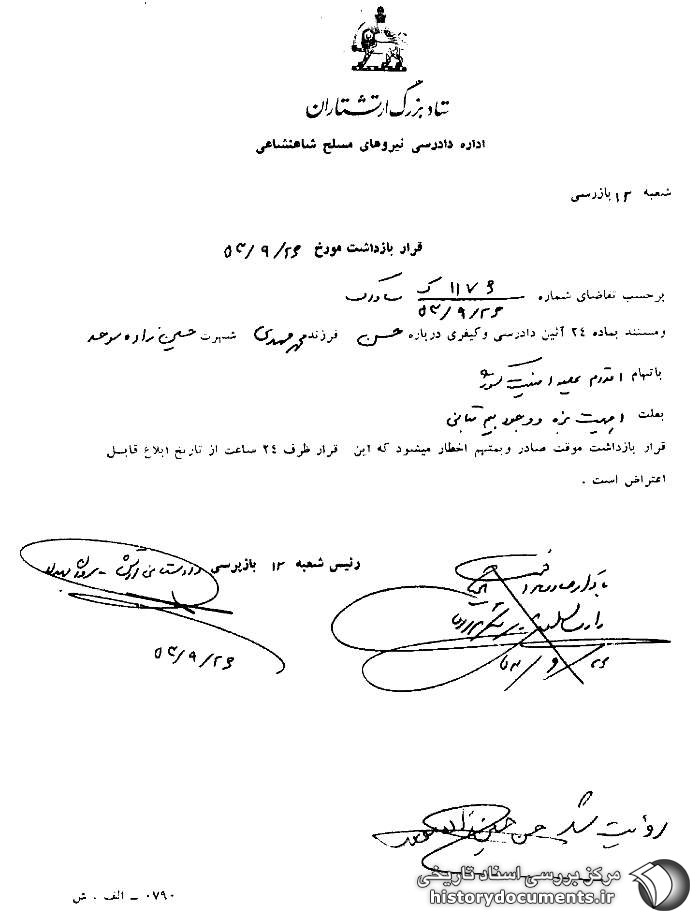 ستاد بزرگ ارتشتاران
اداره دادرسی نیروهای مسلح شاهنشاهی
شعبه ۱۲ بازرسی
قرار بازداشت مورخ ۵۳/۹/۲۶
برحسب تقاضای شماره ساواک
۵۳/۹/۲۶
ومستند بماده ۲۴ آئین دادرسی وکیفری درباره حسن فرزند مهدی شهرت حسین زاده موحد
باتهام اقدام علیه امنیت کشور
بعلت اهمیت بزه و وجود بیم تبانی
قرار بازداشت موقت صادر وبمتهم اخطار میشود که این قرار ظرف ۲۴ ساعت از تاریخ ابلاغ قابل
اعتراض است .
با قرار صادره
۵۳/۹/۲۶
رئیس شعبه ۱۲ بازپرسی دادستانی ارتش
۵۳/۹/۲۶
رؤیت شد حسن حسین زاده موحد
۰۷۹۰ – الف . ش
مرکز بررسی اسناد تاریخی
historydocuments.ir